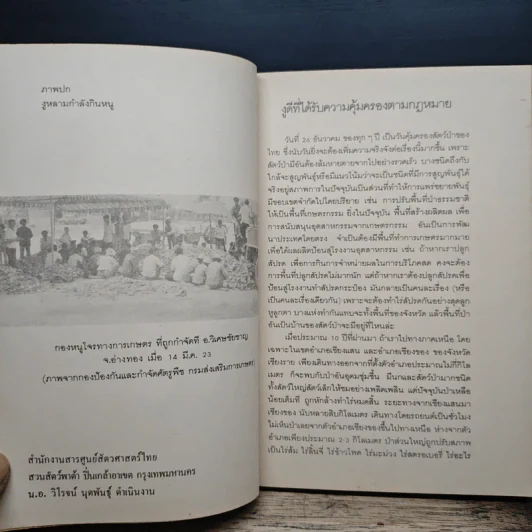 ภาพปก
งูหลามกำลังกินหนู
กองหนูโจรทางการเกษตร ที่ถูกกำจัดที่ อ.วิเศษชัยชาญ
จ.อ่างทอง เมื่อ 14 มี.ค. 23
(ภาพจากกองป้องกันและกำจัดศัตรูพืช กรมส่งเสริมการเกษตร)
สำนักงานสารศูนย์สัตวศาสตร์ไทย
สวนสัตว์พาต้า ปิ่นเกล้าอาเขต กรุงเทพมหานคร
น.อ. วิโรจน์ นุตพันธุ์ ดำเนินงาน
งูดีที่ได้รับความคุ้มครองตามกฎหมาย
วันที่ 26 ธันวาคม ของทุก ๆ ปี เป็นวันคุ้มครองสัตว์ป่าของ
ไทย ซึ่งนับวันยิ่งจะต้องเพิ่มความจริงจังต่อเรื่องนี้มากขึ้น เพราะ
สัตว์ป่ามีอันต้องล้มหายตายจากไปอย่างรวดเร็ว บางชนิดถึงกับ
ใกล้จะสูญพันธุ์หรือมีแนวโน้มว่าจะเป็นชนิดที่มีการสูญพันธุ์ได้
จริงอยู่สภาพการในปัจจุบันเป็นส่วนที่ทำให้การแพร่ขยายพันธุ์
มีขอบเขตจำกัดไปโดยปริยาย เช่น การปรับพื้นที่ป่าธรรมชาติ
ให้เป็นพื้นที่เกษตรกรรม ยิ่งในปัจจุบัน พื้นที่สร้างผลผลิต เพื่อ
การสนับสนุนอุตสาหกรรมจากเกษตรกรรม อันเป็นการพัฒ-
นาประเทศโดยตรง จำเป็นต้องมีพื้นที่ทำการเกษตรมากมาย
เพื่อได้ผลผลิตป้อนสู่โรงงานอุตสาหกรรม เช่น ถ้าหากเราปลูก
สัปรด เพื่อการกินการจำหน่ายผลในการบริโภคสด คงจะต้อง
การพื้นที่ปลูกสัปรดไม่มากนัก แต่ถ้าหากเราต้องปลูกสัปรดเพื่อ
ป้อนสู่โรงงานทำสัปรดกระป๋อง มันกลายเป็นคนละเรื่อง (หรือ
เป็นคนละเรื่องเดียวกัน) เพราะจะต้องทำไร่สัปรดกันอย่างสุดลูก
หูลูกตา บางแห่งทำกันแทบจะทั้งพื้นที่ของจังหวัด แล้วพื้นที่ป่า
อันเป็นบ้านของสัตว์ป่าจะมีอยู่ที่ไหนล่ะ
เมื่อประมาณ 10 ปีที่ผ่านมา ถ้าเราไปทางภาคเหนือ โดย
เฉพาะในเขตอำเภอเชียงแสน และอำเภอเชียงของ ของจังหวัด
เชียงราย เพียงเดินทางออกจากที่ตั้งตัวอำเภอประมาณไม่กี่กิโล
เมตร ก็จะพบกับป่าอันอุดมชุ่มชื้น มีนกและสัตว์ป่านานาชนิด
ทั้งสัตว์ใหญ่สัตว์เล็กให้ชมอย่างเพลิดเพลิน แต่ปัจจุบันป่าเหลือ
น้อยเต็มที ถูกหักล้างทำไร่หมดสิ้น ระยะทางจากเชียงแสนมา
เชียงของ นับหลายสิบกิโลเมตร เดินทางโดยรถยนต์เป็นชั่วโมง
ไม่เห็นป่าเลยจากตัวอำเภอเชียงของขึ้นไปทางเหนือ ห่างจากตัว
อำเภอเพียงประมาณ 2-3 กิโลเมตร ป่าส่วนใหญ่ถูกปรับสภาพ
เป็นไร่ส้ม ไร่ลิ้นจี่ ไร่ข้าวโพด ไร่มะม่วง ไร่สตรอเบอรี่ ไร่อะไร